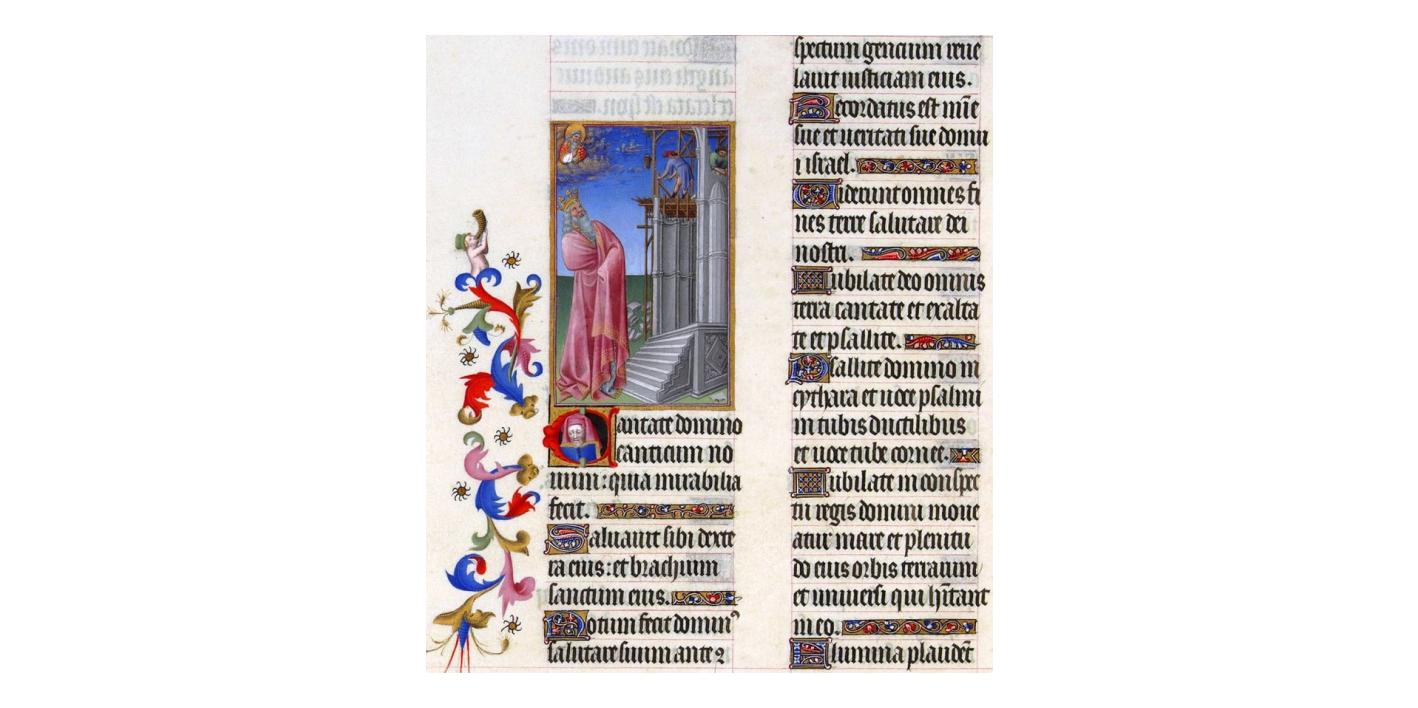 Cantate domino
canticum no
uum: quia mirabilia
fecit.
Saluauit sibi dexte
ra eius: et brachium
sanctum eius.
Notum fecit dominꝰ
salutare suum ante
spectum gencium reue
lauit iusticiam eius.
Recordatus est mīe
sue et ueritati sue domu
i israel.
Uiderunt omnes fi
nes terre salutare dei
nostri.
Iubilate deo omnis
terra cantate et exulta
te et psallite.
Psallite domino in
cythara et uoce psalmi
in tubis ductilibus
et uoce tube cornee.
Iubilate in conspec
tu regis domini moue
atur mare et plenitu
do eius orbis terrarum
et uniuersi qui hītant
in eo.
Flumina plaudēt